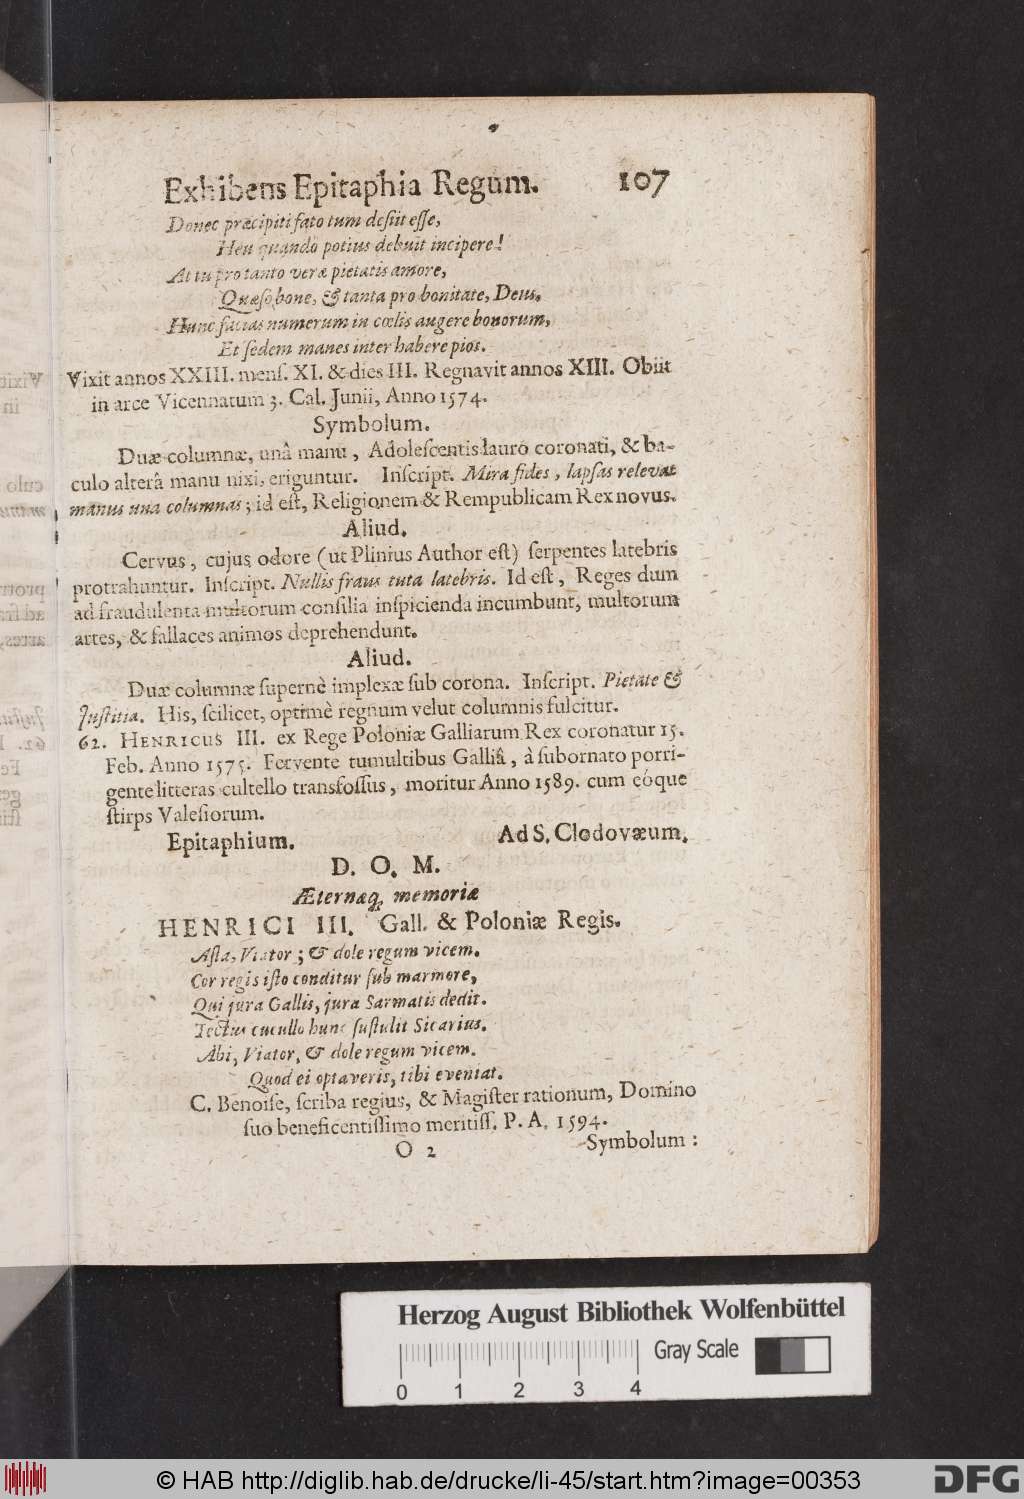 Exhibens Epitaphia Regum. 107
Donec præcipiti fato tum desiit esse,
Heu quando potius debuit incipere!
At tu pro tanto veræ pietatis amore,
Quæso, bone, & tanta pro bonitate, Deus.
Hunc facias numerum in cœlis augere bonorum,
Et sedem manes inter habere pios.
Vixit annos XXIII. mens. XI. & dies III. Regnavit annos XIII. Obiit
in arce Vicennatum 3. Cal. Junii, Anno 1574.
Symbolum.
Duæ columnæ, unâ manu, Adolescentis lauro coronati, & ba-
culo alterâ manu nixi, eriguntur. Inscript. Mira fides, lapsas relevat
manus una columnas; id est, Religionem & Rempublicam Rex novus.
Aliud.
Cervus, cujus odore (ut Plinius Author est) serpentes latebris
protrahuntur. Inscript. Nullis fraus tuta latebris. Id est, Reges dum
ad fraudulenta multorum consilia inspicienda incumbunt, multorum
artes, & fallaces animos deprehendunt.
Aliud.
Duæ columnæ supernè implexæ sub corona. Inscript. Pietate &
Justitia. His, scilicet, optimè regnum velut columnis fulcitur.
62. HENRICUS III. ex Rege Poloniæ Galliarum Rex coronatur 15.
Feb. Anno 1575. Fervente tumultibus Galliâ, à subornato porri-
gente litteras cultello transfossus, moritur Anno 1589. cum eóque
stirps Valesiorum.
Epitaphium. Ad S. Clodovæum.
D. O. M.
Æternaq; memoriæ
HENRICI III. Gall. & Poloniæ Regis.
Asta, Viator; & dole regum vicem.
Cor regis isto conditur sub marmore,
Qui jura Gallis, jura Sarmatis dedit.
Tectus cucullo hunc sustulit Sicarius.
Abi, Viator, & dole regum vicem.
Quod ei optaveris, tibi eveniat.
C. Benoise, scriba regius, & Magister rationum, Domino
suo beneficentissimo meritiss. P. A. 1594.
O 2 Symbolum:
Herzog August Bibliothek Wolfenbüttel
Gray Scale
0 1 2 3 4
© HAB http://diglib.hab.de/drucke/li-45/start.htm?image=00353
DFG